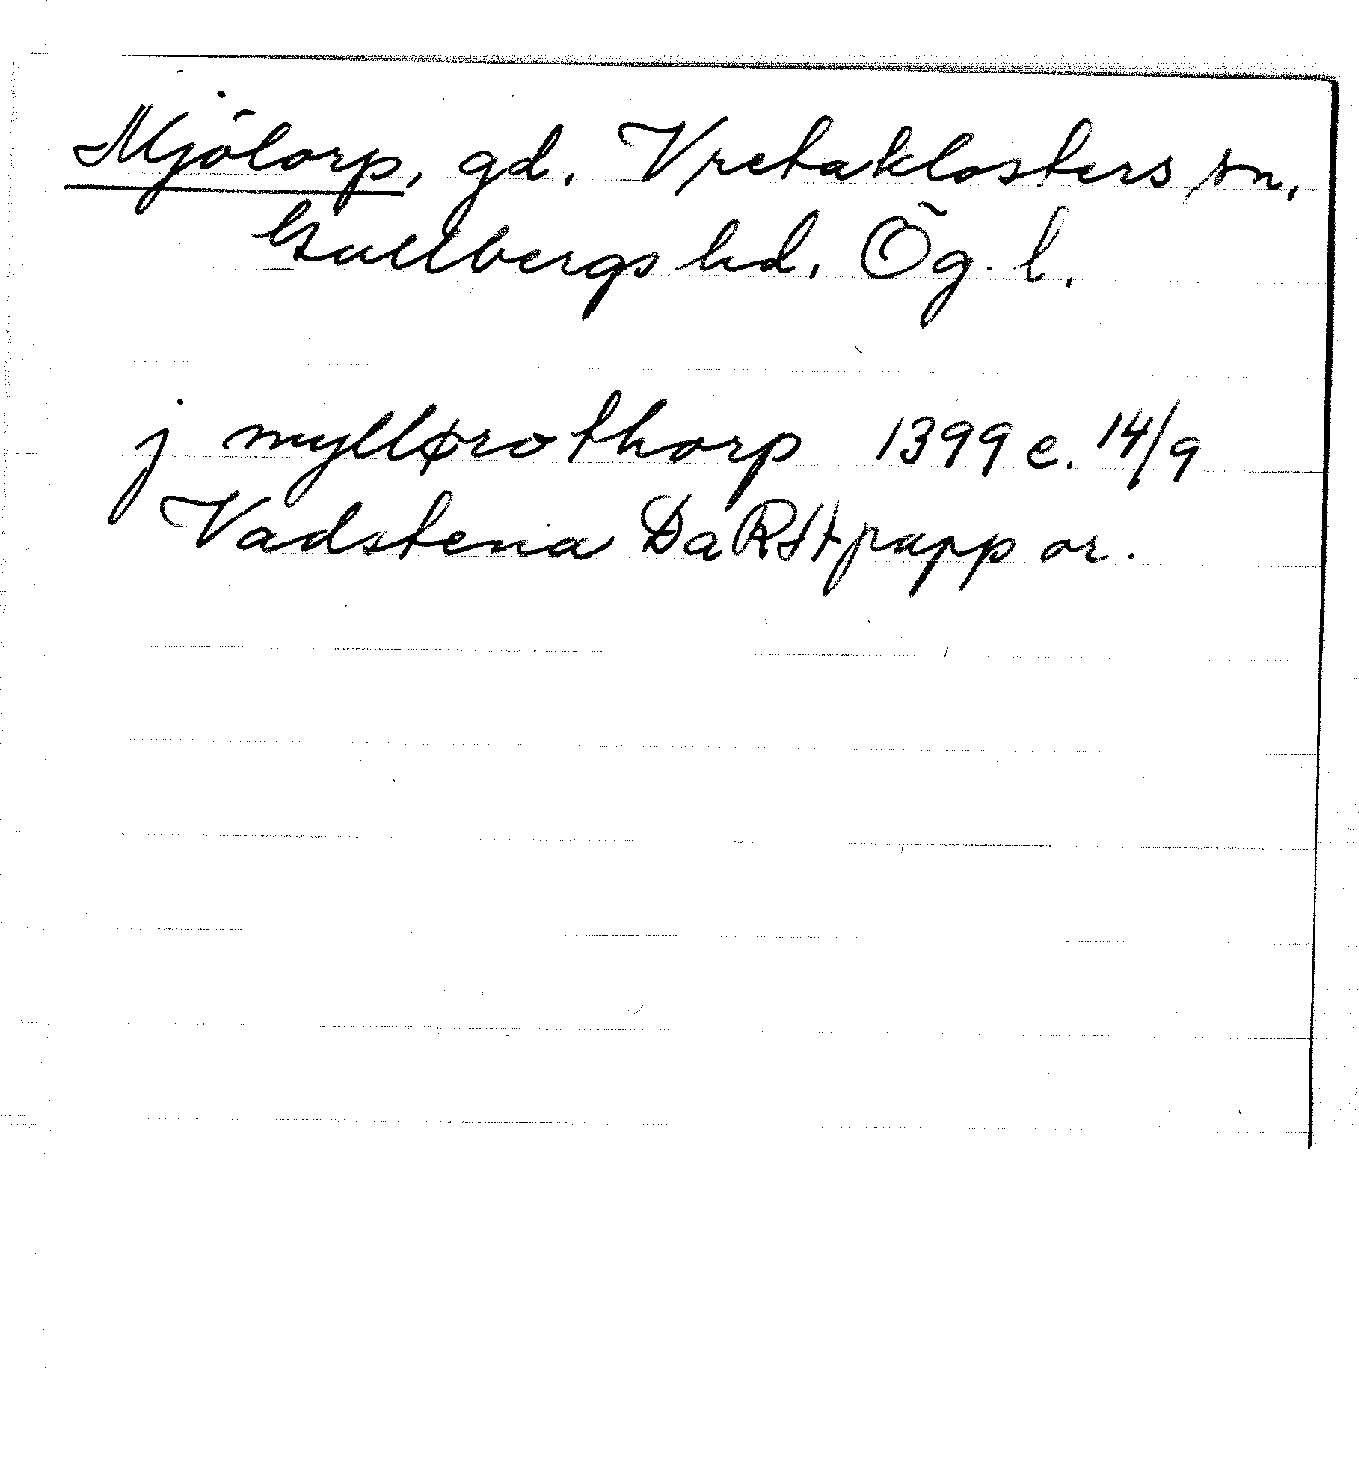 Mjölorp, gd. Vretaklosters sn.
Gullbergs hd. Ög. l.
j mylløro thorp 1399 e. 14/9
Vadstena Da RSt papp or.